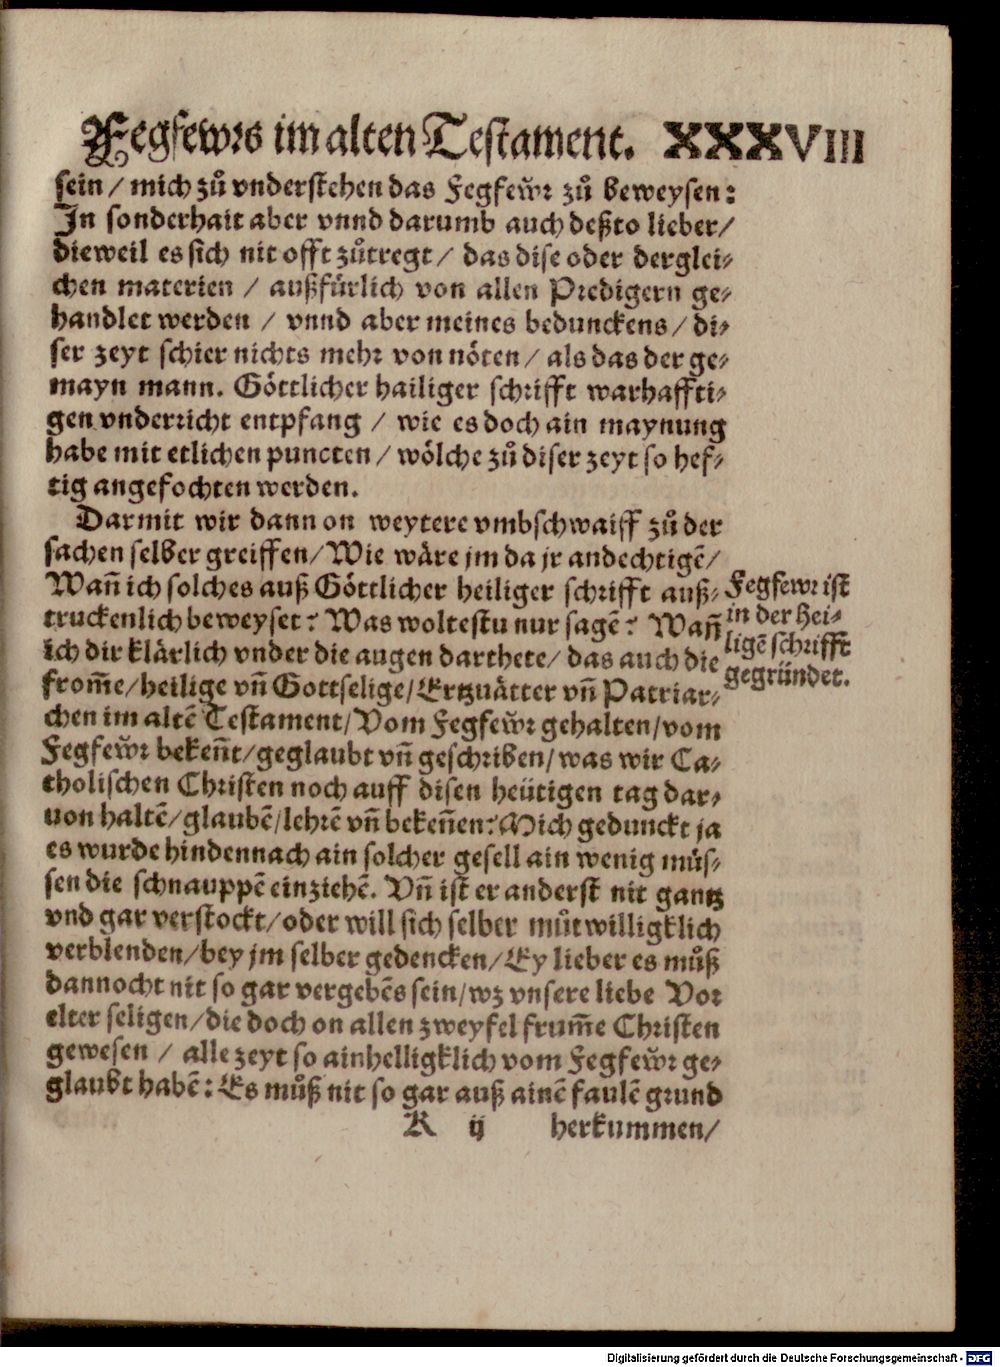 Fegfewrs im alten Testament. XXXVIII
sein / mich zů vnderstehen das Fegfewͤr zů beweysen:
In sonderhait aber vnnd darumb auch deßto lieber/
dieweil es sich nit offt zůtregt / das dise oder derglei-
chen materien / außfürlich von allen Predigern ge-
handlet werden / vnnd aber meines bedunckens / di-
ser zeyt schier nichts mehr von nöten / als das der ge-
mayn mann. Göttlicher hailiger schrifft warhaffti-
gen vnderricht entpfang / wie es doch ain maynung
habe mit etlichen puncten / wölche zů diser zeyt so hef-
tig angefochten werden.
Darmit wir dann on weytere vmbschwaiff zů der
sachen selber greiffen/ Wie wäre jm da jr andechtigē/
Wañ ich solches auß Göttlicher heiliger schrifft auß-
truckenlich beweyset? Was woltestu nur sagē? Wañ
ich dir klärlich vnder die augen darthete/ das auch die
from̃e/ heilige vñ Gottselige/ Ertzuätter vñ Patriar-
chen im altē Testament/ Vom Fegfewͤr gehalten/ vom
Fegfewͤr bekeñt/ geglaubt vñ geschriben/ was wir Ca-
tholischen Christen noch auff disen heütigen tag dar-
uon haltē/ glaubē/ lehrē vñ bekeñen? Mich gedunckt ja
es wurde hindennach ain solcher gesell ain wenig müs-
sen die schnauppē einziehē. Vñ ist er anderst nit gantz
vnd gar verstockt/ oder will sich selber můtwilligklich
verblenden/ bey jm selber gedencken/ Ey lieber es můß
dannocht nit so gar vergebēs sein/ wz vnsere liebe Vor
elter seligen/ die doch on allen zweyfel frum̃e Christen
gewesen / alle zeyt so ainhelligklich vom Fegfewͤr ge-
glaubt habē: Es můß nit so gar auß ainē faulē grund
K ij herkummen/
Fegfewr ist
in der Hei-
ligē schrifft
gegründet.
Digitalisierung gefördert durch die Deutsche Forschungsgemeinschaft - DFG